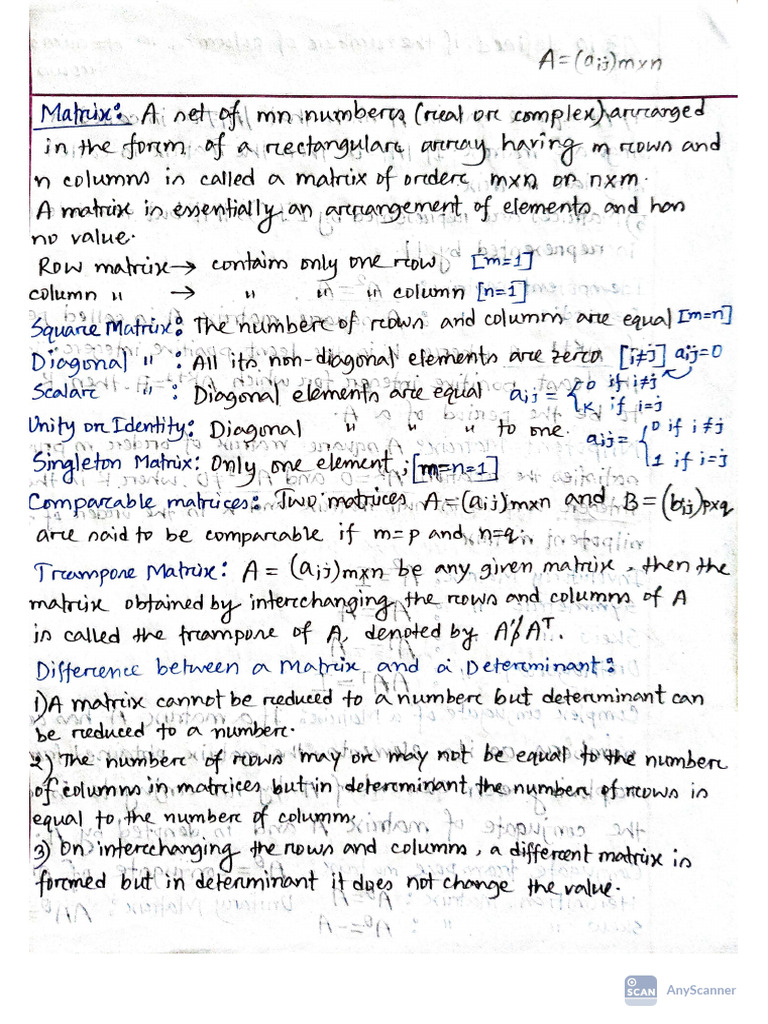 A=(aij)m×n
Matrix: A set of mn numbers (real or complex) arranged
in the form of a rectangular array having m rows and
n columns is called a matrix of order m×n or n×m.
A matrix is essentially an arrangement of elements and has
no value.
Row matrix → contains only one row [m=1]
column " → " " " column [n=1]
Square Matrix: The number of rows and columns are equal [m=n]
Diagonal " : All its non-diagonal elements are zero [i≠j] aij=0
Scalar " : Diagonal elements are equal aij = { 0 if i≠j
K if i=j
Unity or Identity: Diagonal " " " to one. aij = { 0 if i≠j
1 if i=j
Singleton Matrix: Only one element, [m=n=1]
Comparable matrices: Two matrices A=(aij)m×n and B=(bij)p×q
are said to be comparable if m=p and n=q.
Transpose Matrix: A = (aij)m×n be any given matrix, then the
matrix obtained by interchanging the rows and columns of A
is called the transpose of A, denoted by A'/ Aᵀ.
Difference between a Matrix and a Determinant:
1) A matrix cannot be reduced to a number but determinant can
be reduced to a number.
2) The number of rows may or may not be equal to the number
of columns in matrices but in determinant the number of rows is
equal to the number of columns
3) On interchanging the rows and columns, a different matrix is
formed but in determinant it does not change the value.
SCAN AnyScanner